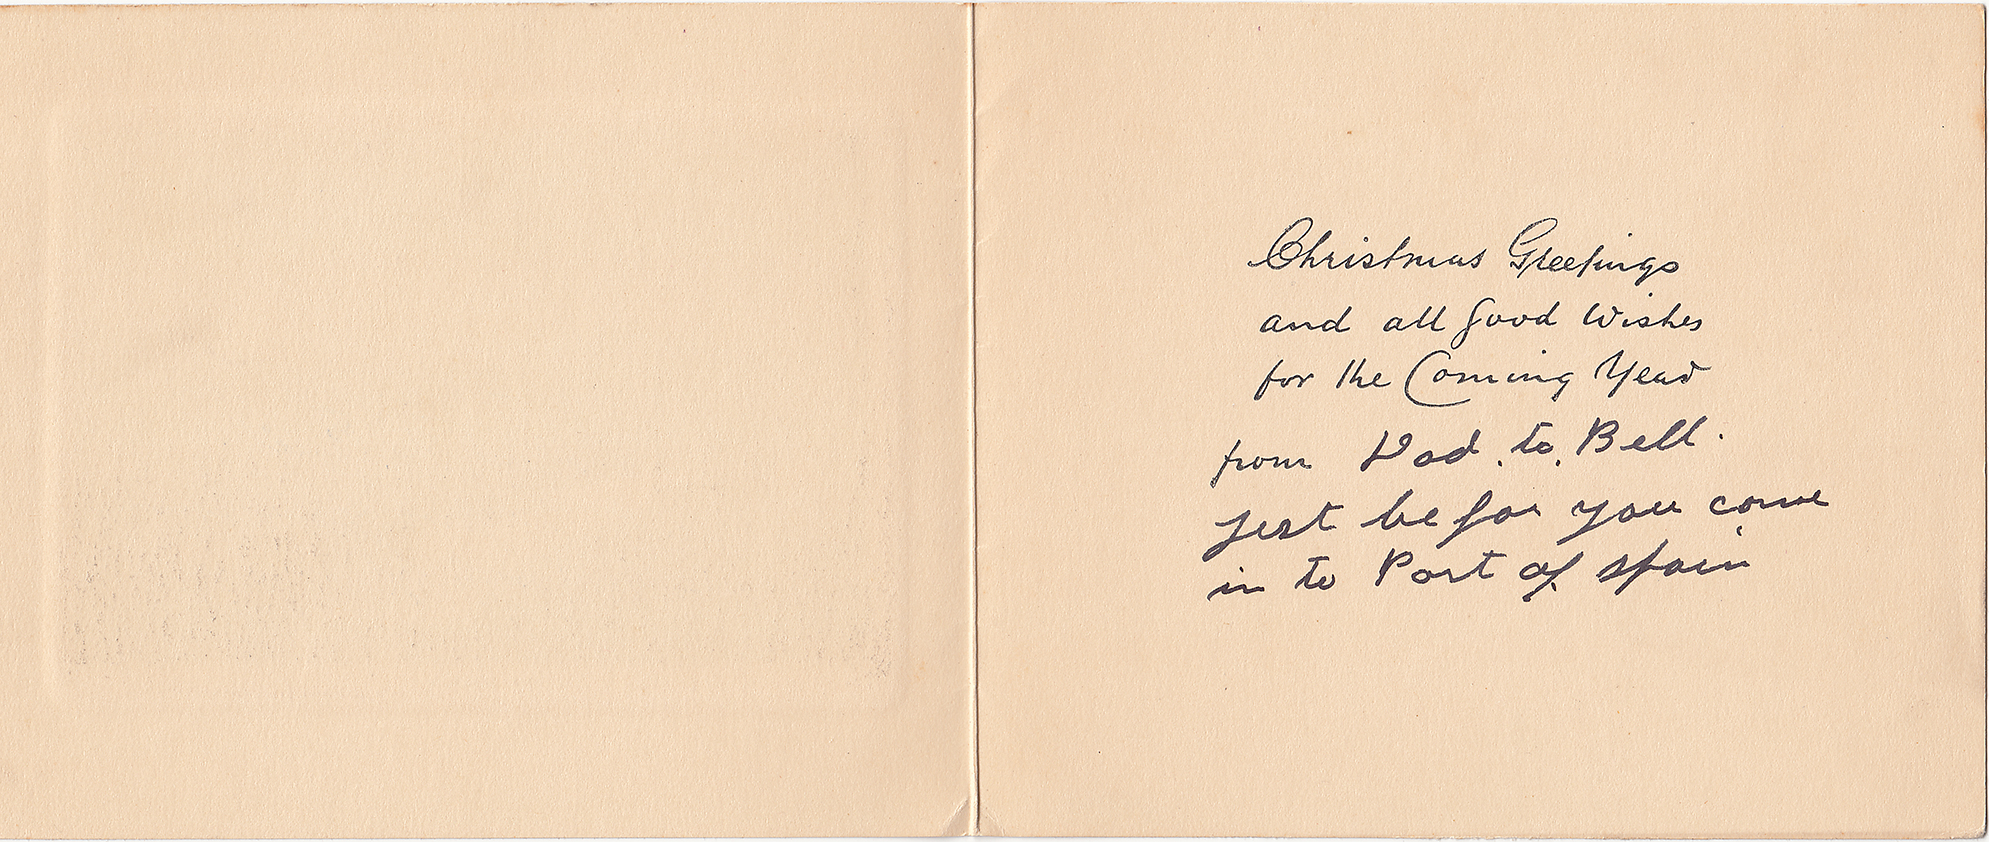 Christmas Greetings
and all good wishes
for the Coming Year
from Dad. to. Bell.
jest befor you come
in to Port of spain